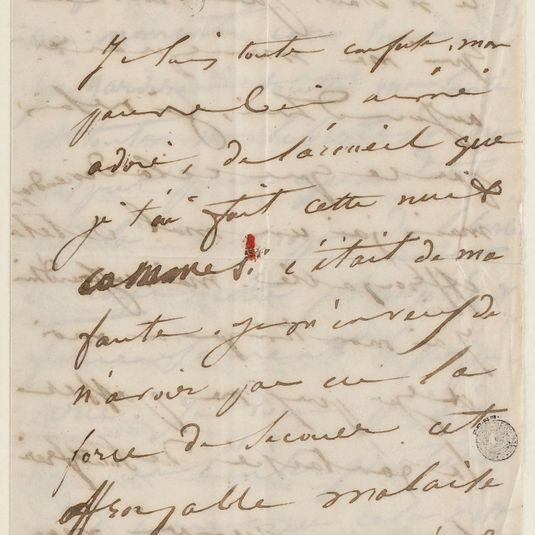 Je suis toute confuse, mon
pauvre bien aimé
adoré, de l'accueil que
je t'ai fait cette nuit
comme si c'était de ma
faute. Je m'en veux de
n'avoir pas eu la
force de secouer cet
effroyable malaise